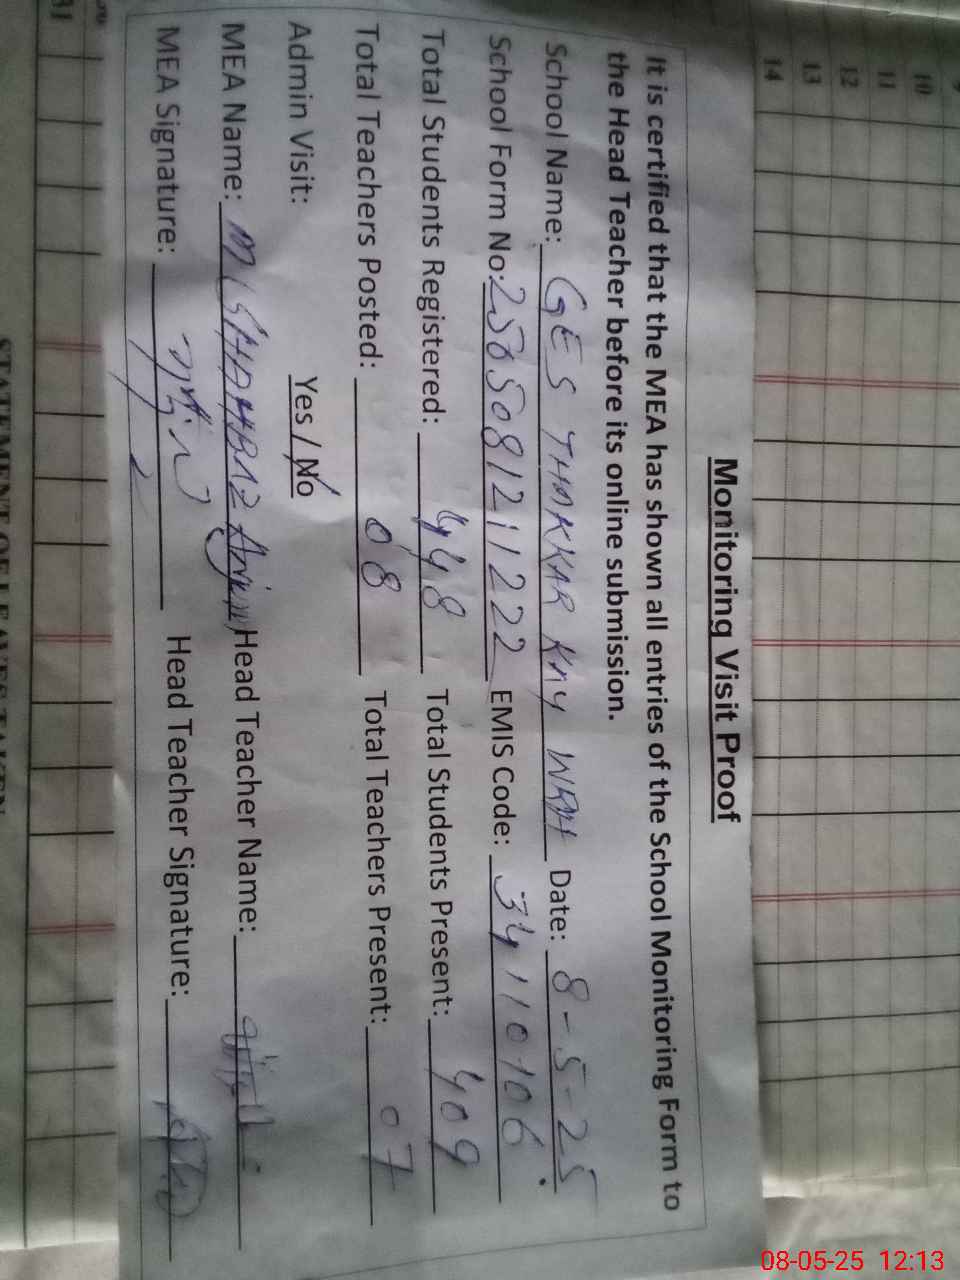 10
11
12
13
14
Monitoring Visit Proof
It is certified that the MEA has shown all entries of the School Monitoring Form to
the Head Teacher before its online submission.
School Name: GES THAKKAR Date: 8-5-25
School Form No: EMIS Code: 34110106
Total Students Registered: 448 Total Students Present: 409
Total Teachers Posted: 08 Total Teachers Present: 07
Admin Visit: Yes / No
MEA Name: Head Teacher Name:
MEA Signature: Head Teacher Signature:
31
STATEMENT OF LEAVES TAKEN
08-05-25 12:13